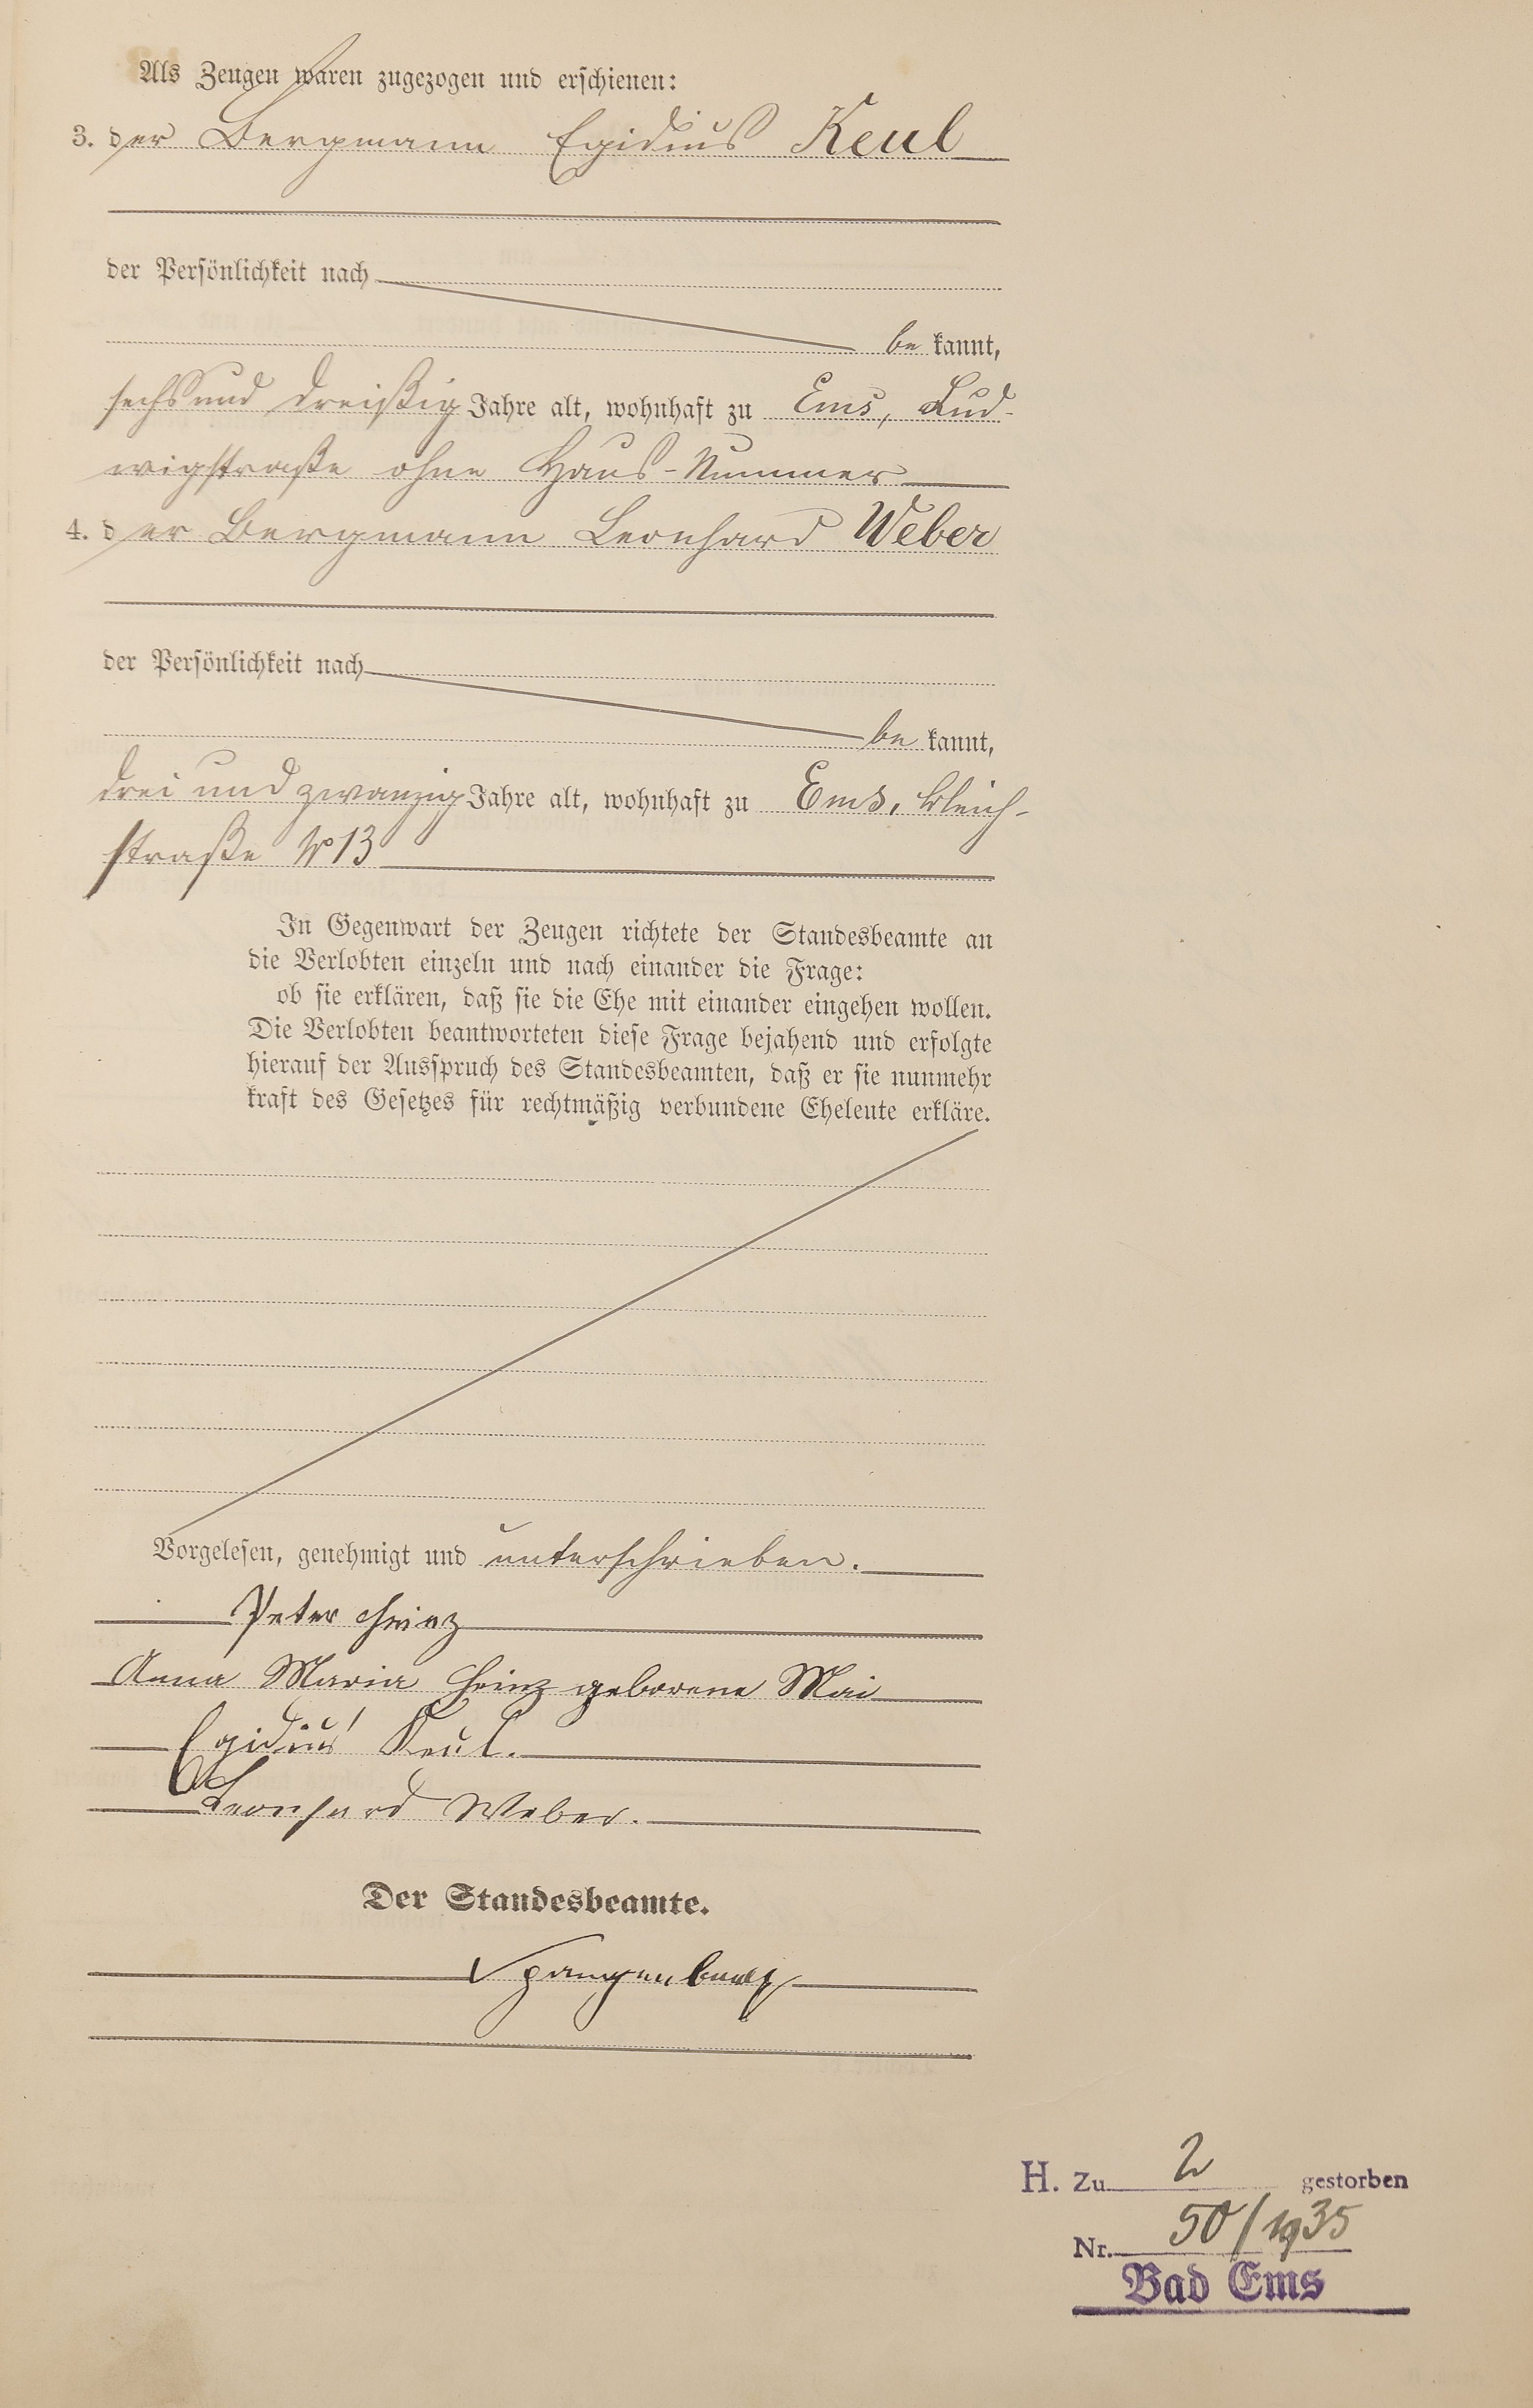 Als Zeugen waren zugezogen und erschienen:
3. der Bergmann Egidius Keul
der Persönlichkeit nach
be kannt,
sechs und dreißig Jahre alt, wohnhaft zu Ems, Lud-
wigstraße ohne Haus-Nummer
4. der Bergmann Leonhard Weber
der Persönlichkeit nach
be kannt,
drei und zwanzig Jahre alt, wohnhaft zu Ems, Bleich-
straße No 13
In Gegenwart der Zeugen richtete der Standesbeamte an
die Verlobten einzeln und nach einander die Frage:
ob sie erklären, daß sie die Ehe mit einander eingehen wollen.
Die Verlobten beantworteten diese Frage bejahend und erfolgte
hierauf der Ausspruch des Standesbeamten, daß er sie nunmehr
kraft des Gesetzes für rechtmäßig verbundene Eheleute erkläre.
Vorgelesen, genehmigt und unterschrieben.
Peter Heinz
Anna Maria Heinz geborene Mai
Egidius Keul.
Leonhard Weber.
Der Standesbeamte.
Spangenberg
H. Zu 2 gestorben
Nr. 50/1935
Bad Ems